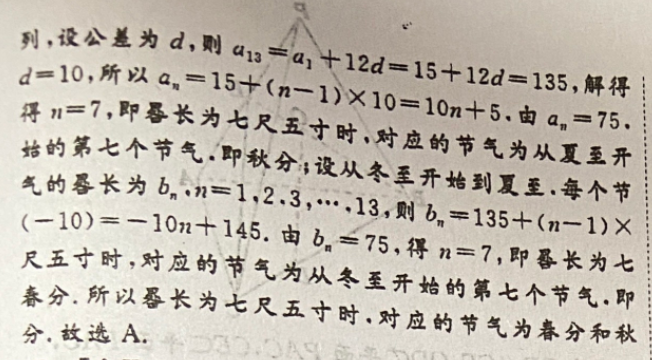 列,设公差为 d,则 a₁₃=a₁+12d=15+12d=135,解得
d=10,所以 aₙ=15+(n-1)×10=10n+5.由 aₙ=75,
得 n=7,即晷长为七尺五寸时,对应的节气为从夏至开
始的第七个节气,即秋分;设从冬至开始到夏至,每个节
气的晷长为 bₙ,n=1,2,3,…,13,则 bₙ=135+(n-1)×
(-10)=-10n+145.由 bₙ=75,得 n=7,即晷长为七
尺五寸时,对应的节气为从冬至开始的第七个节气,即
春分.所以晷长为七尺五寸时,对应的节气为春分和秋
分.故选 A.